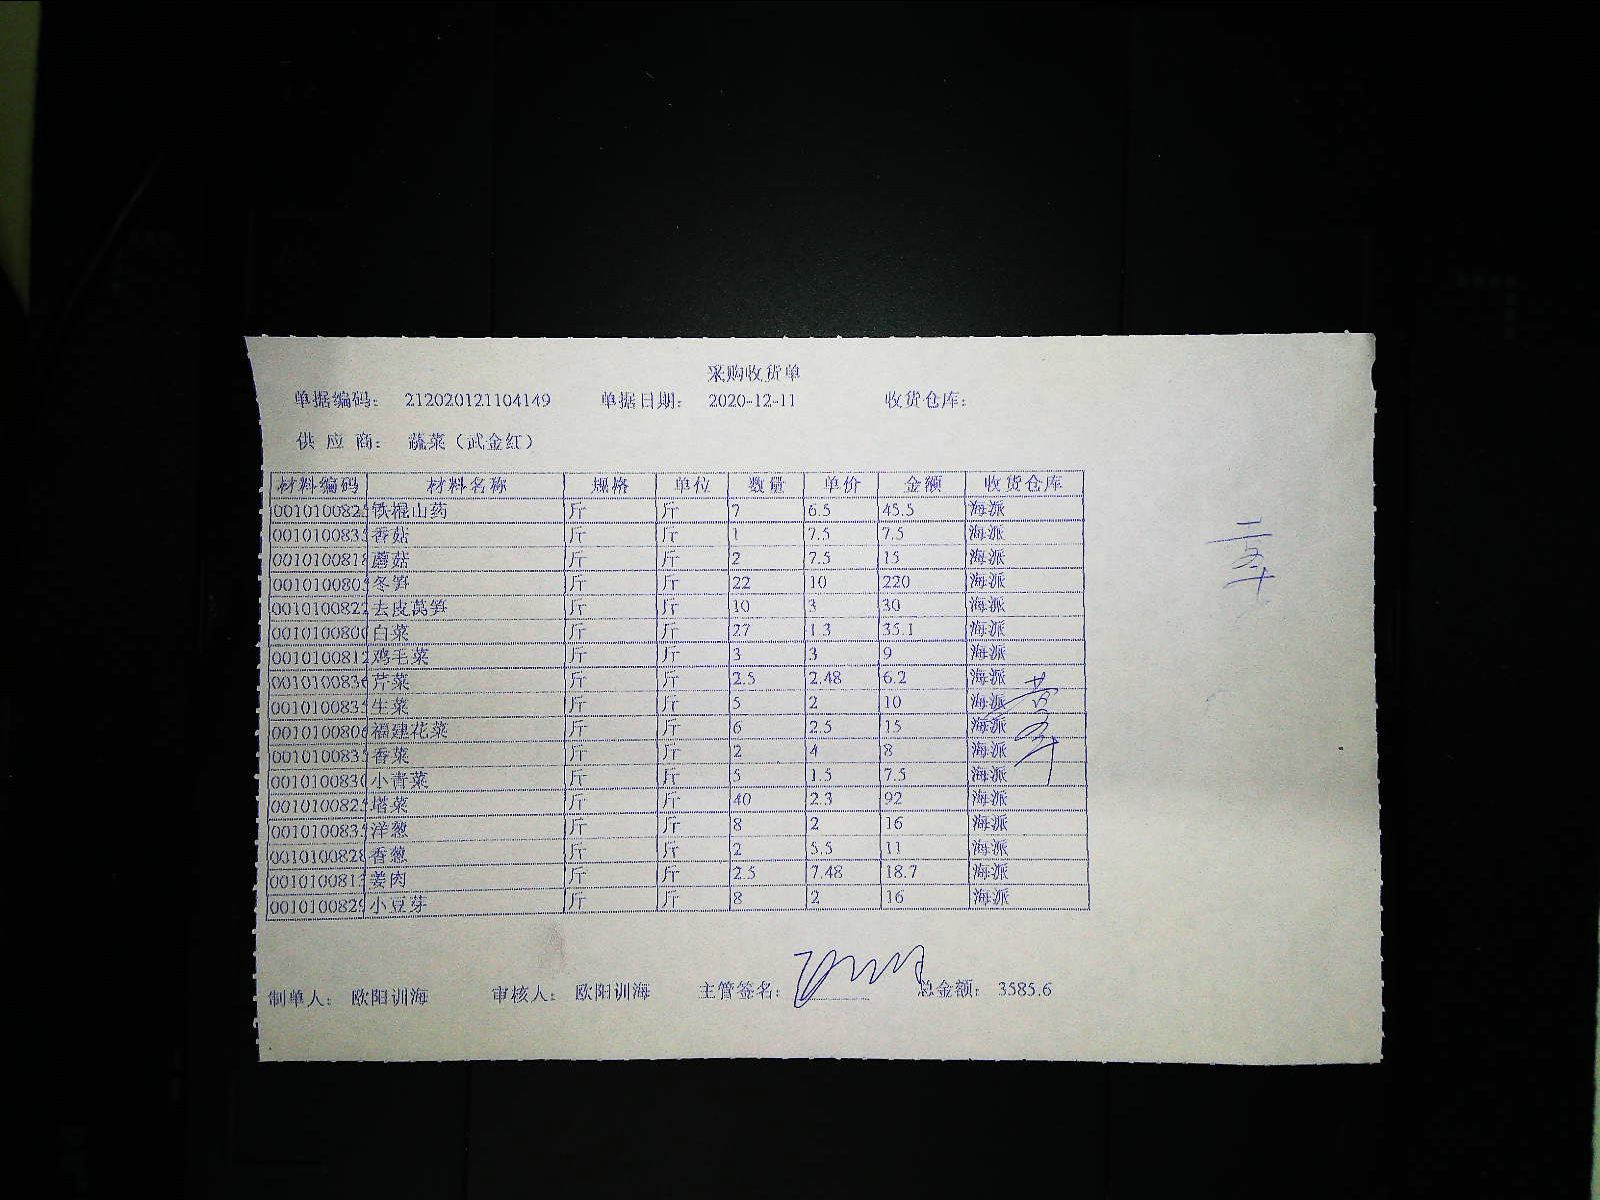 采购收货单
单据编码： 212020121104149 单据日期： 2020-12-11 收货仓库：
供 应 商： 蔬菜（武金红）
材料编码 材料名称 规格 单位 数量 单价 金额 收货仓库
001010082 铁棍山药 斤 斤 7 6.5 45.5 海派
001010083 香菇 斤 斤 1 7.5 7.5 海派
001010081 蘑菇 斤 斤 2 7.5 15 海派
001010080 冬笋 斤 斤 22 10 220 海派
001010082 去皮莴笋 斤 斤 10 3 30 海派
001010080 白菜 斤 斤 27 1.3 35.1 海派
001010081 鸡毛菜 斤 斤 3 3 9 海派
001010083 芹菜 斤 斤 2.5 2.48 6.2 海派
001010083 生菜 斤 斤 5 2 10 海派
001010080 福建花菜 斤 斤 6 2.5 15 海派
001010083 香菜 斤 斤 2 4 8 海派
001010083 小青菜 斤 斤 5 1.5 7.5 海派
001010082 塔菜 斤 斤 40 2.3 92 海派
001010083 洋葱 斤 斤 8 2 16 海派
001010082 香葱 斤 斤 2 5.5 11 海派
001010081 姜肉 斤 斤 2.5 7.48 18.7 海派
001010082 小豆芽 斤 斤 8 2 16 海派
制单人： 欧阳训海 审核人： 欧阳训海 主管签名： 总金额： 3585.6